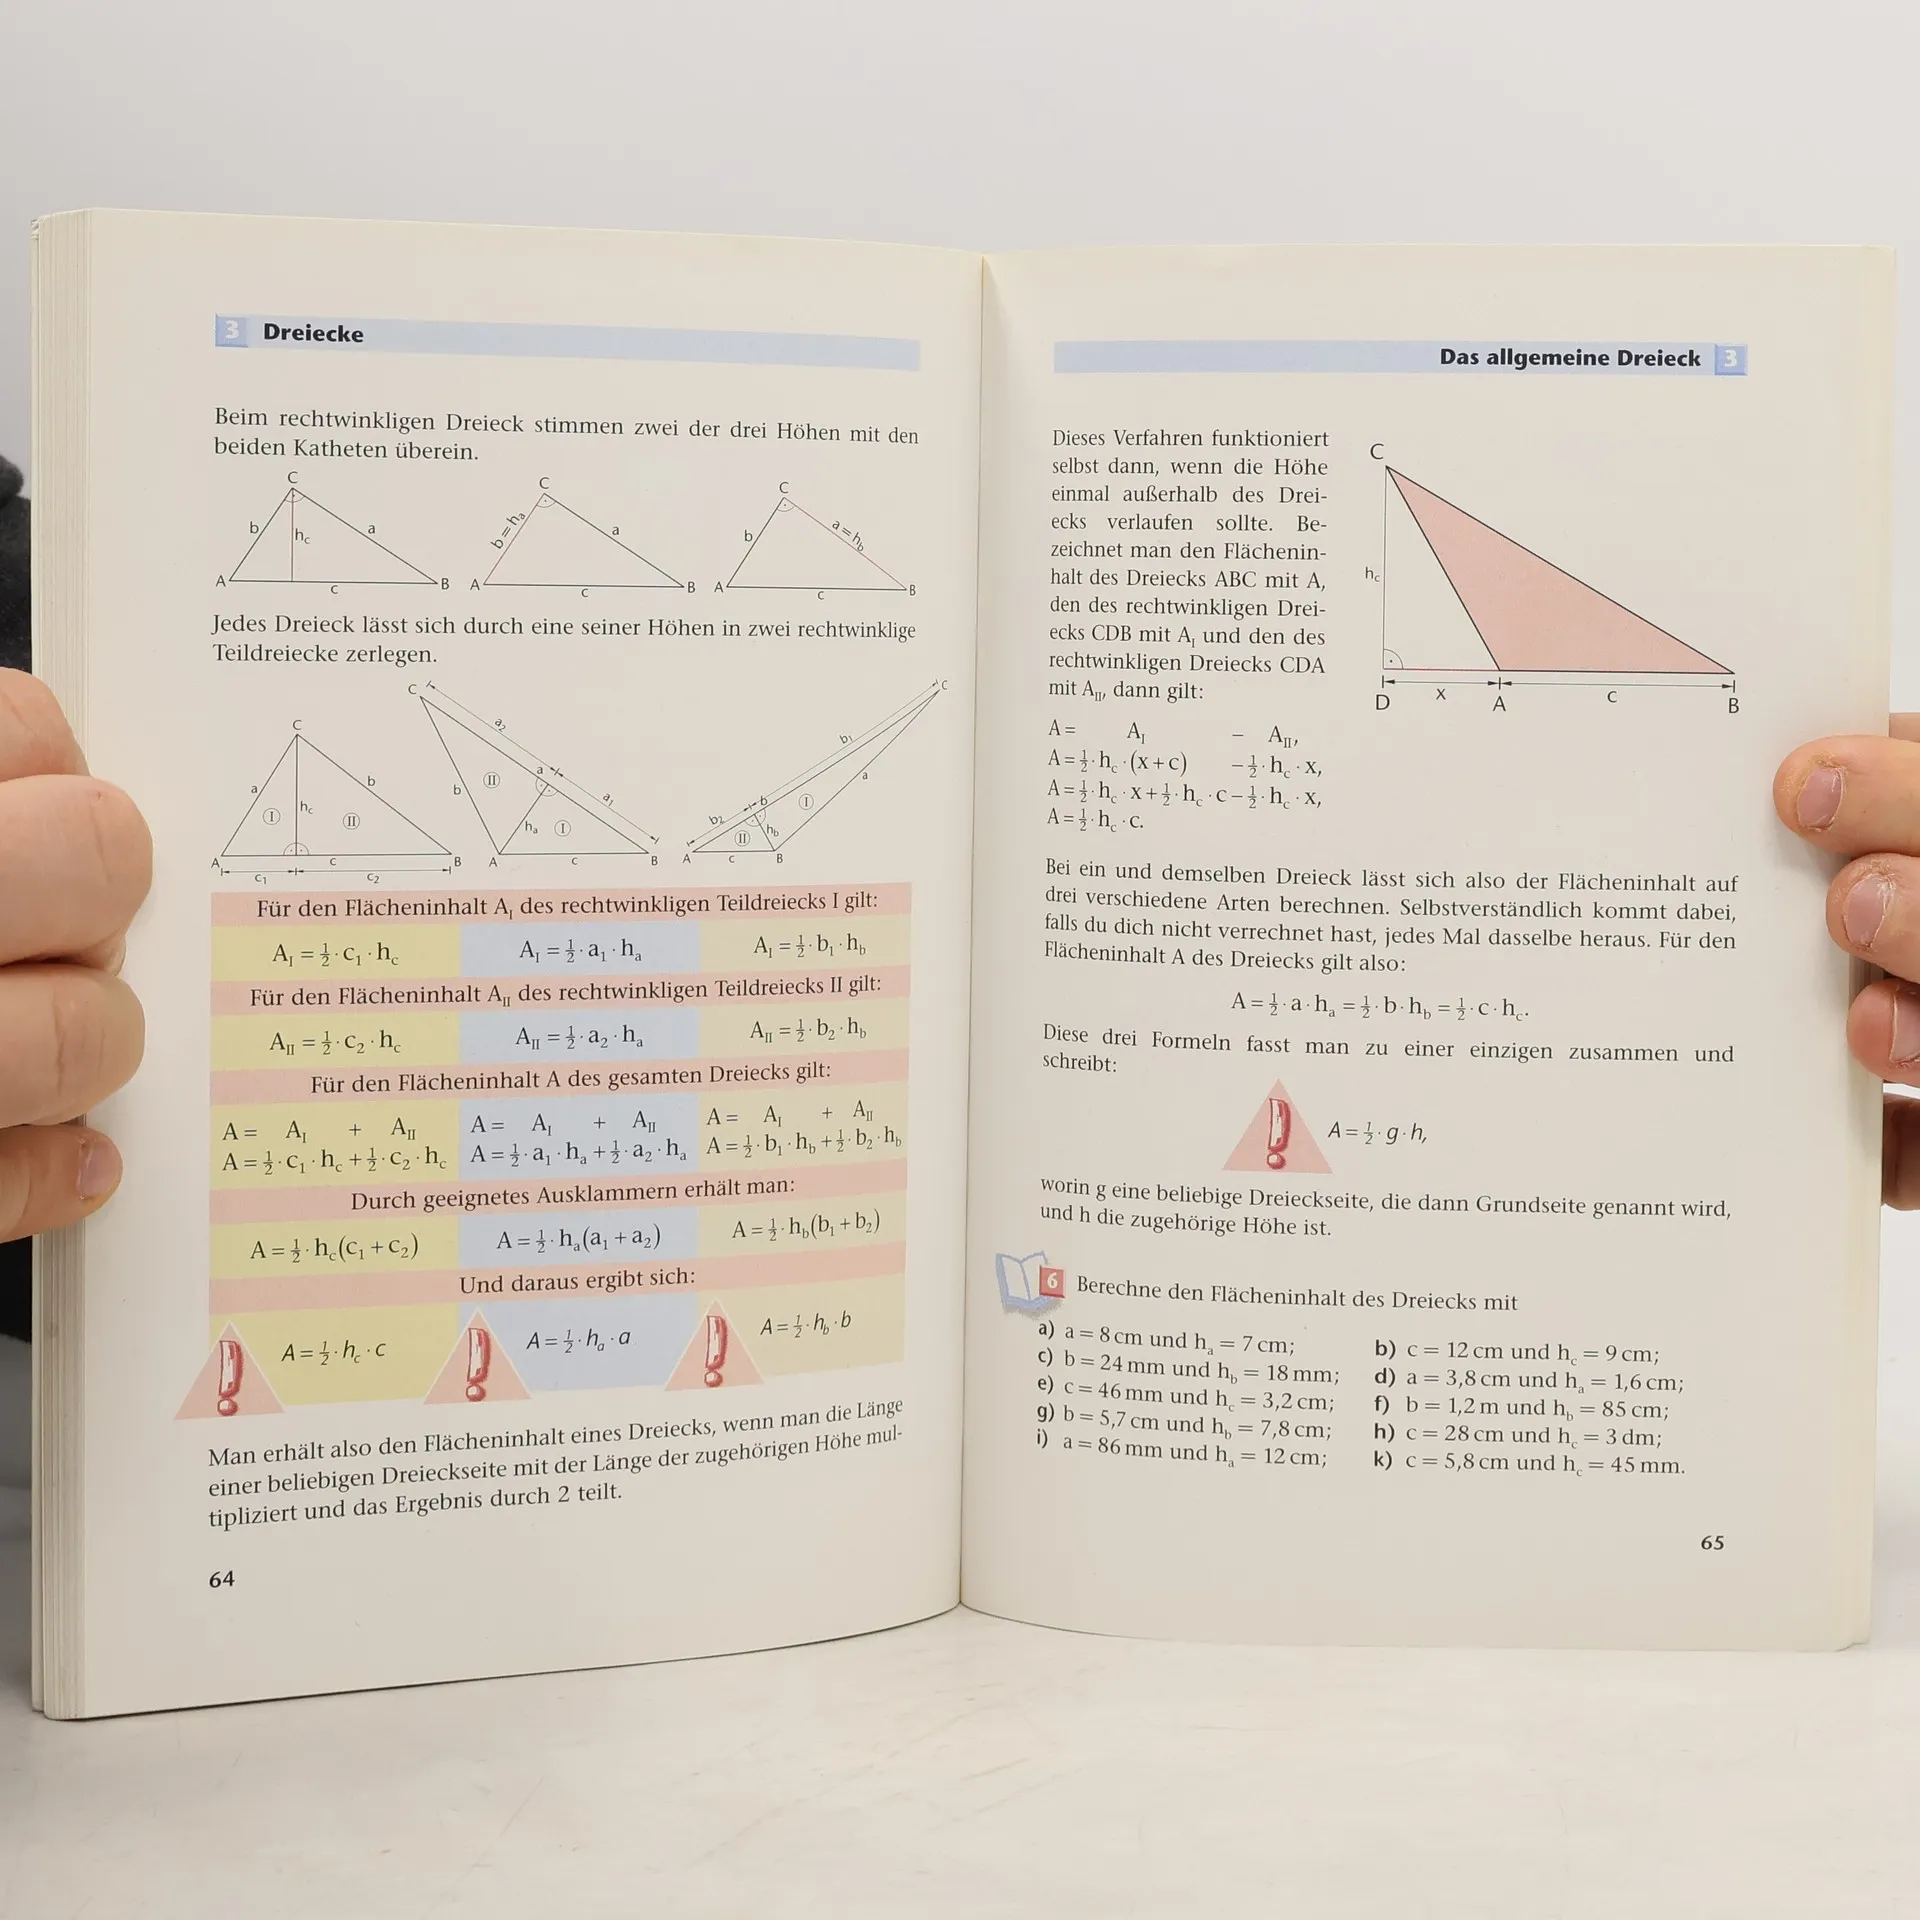 3 Dreiecke
Beim rechtwinkligen Dreieck stimmen zwei der drei Höhen mit den
beiden Katheten überein.
C C C
b h_c a b = h_a a b a = h_b
A c B A c B A c B
Jedes Dreieck lässt sich durch eine seiner Höhen in zwei rechtwinklige
Teildreiecke zerlegen.
C a h_c b I II A c B c₁ c₂
C a₂ a a₁ II b h_a I A c B
C b₁ a b I b₂ II h_b A c B
Für den Flächeninhalt A_I des rechtwinkligen Teildreiecks I gilt:
A_I = ½ · c₁ · h_c A_I = ½ · a₁ · h_a A_I = ½ · b₁ · h_b
Für den Flächeninhalt A_II des rechtwinkligen Teildreiecks II gilt:
A_II = ½ · c₂ · h_c A_II = ½ · a₂ · h_a A_II = ½ · b₂ · h_b
Für den Flächeninhalt A des gesamten Dreiecks gilt:
A = A_I + A_II A = A_I + A_II A = A_I + A_II
A = ½ · c₁ · h_c + ½ · c₂ · h_c A = ½ · a₁ · h_a + ½ · a₂ · h_a A = ½ · b₁ · h_b + ½ · b₂ · h_b
Durch geeignetes Ausklammern erhält man:
A = ½ · h_c(c₁ + c₂) A = ½ · h_a(a₁ + a₂) A = ½ · h_b(b₁ + b₂)
Und daraus ergibt sich:
! A = ½ · h_c · c ! A = ½ · h_a · a ! A = ½ · h_b · b
Man erhält also den Flächeninhalt eines Dreiecks, wenn man die Länge
einer beliebigen Dreieckseite mit der Länge der zugehörigen Höhe mul-
tipliziert und das Ergebnis durch 2 teilt.
64
Das allgemeine Dreieck 3
Dieses Verfahren funktioniert
selbst dann, wenn die Höhe
einmal außerhalb des Drei-
ecks verlaufen sollte. Be-
zeichnet man den Flächenin-
halt des Dreiecks ABC mit A,
den des rechtwinkligen Drei-
ecks CDB mit A_I und den des
rechtwinkligen Dreiecks CDA
mit A_II, dann gilt:
C
h_c
x c
D A B
A = A_I – A_II,
A = ½ · h_c · (x + c) – ½ · h_c · x,
A = ½ · h_c · x + ½ · h_c · c – ½ · h_c · x,
A = ½ · h_c · c.
Bei ein und demselben Dreieck lässt sich also der Flächeninhalt auf
drei verschiedene Arten berechnen. Selbstverständlich kommt dabei,
falls du dich nicht verrechnet hast, jedes Mal dasselbe heraus. Für den
Flächeninhalt A des Dreiecks gilt also:
A = ½ · a · h_a = ½ · b · h_b = ½ · c · h_c.
Diese drei Formeln fasst man zu einer einzigen zusammen und
schreibt:
! A = ½ · g · h,
worin g eine beliebige Dreieckseite, die dann Grundseite genannt wird,
und h die zugehörige Höhe ist.
6 Berechne den Flächeninhalt des Dreiecks mit
a) a = 8 cm und h_a = 7 cm; b) c = 12 cm und h_c = 9 cm;
c) b = 24 mm und h_b = 18 mm; d) a = 3,8 cm und h_a = 1,6 cm;
e) c = 46 mm und h_c = 3,2 cm; f) b = 1,2 m und h_b = 85 cm;
g) b = 5,7 cm und h_b = 7,8 cm; h) c = 28 cm und h_c = 3 dm;
i) a = 86 mm und h_a = 12 cm; k) c = 5,8 cm und h_c = 45 mm.
65